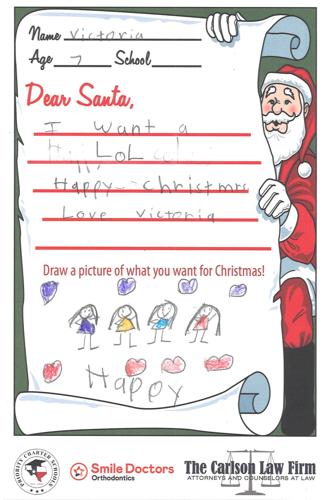 Name Victoria
Age 7 School
Dear Santa,
I want a
LOL
Happy christmas
Love victoria
Draw a picture of what you want for Christmas!
Happy
PRIORITY CHARTER SCHOOLS
Smile Doctors
Orthodontics
The Carlson Law Firm
ATTORNEYS AND COUNSELORS AT LAW